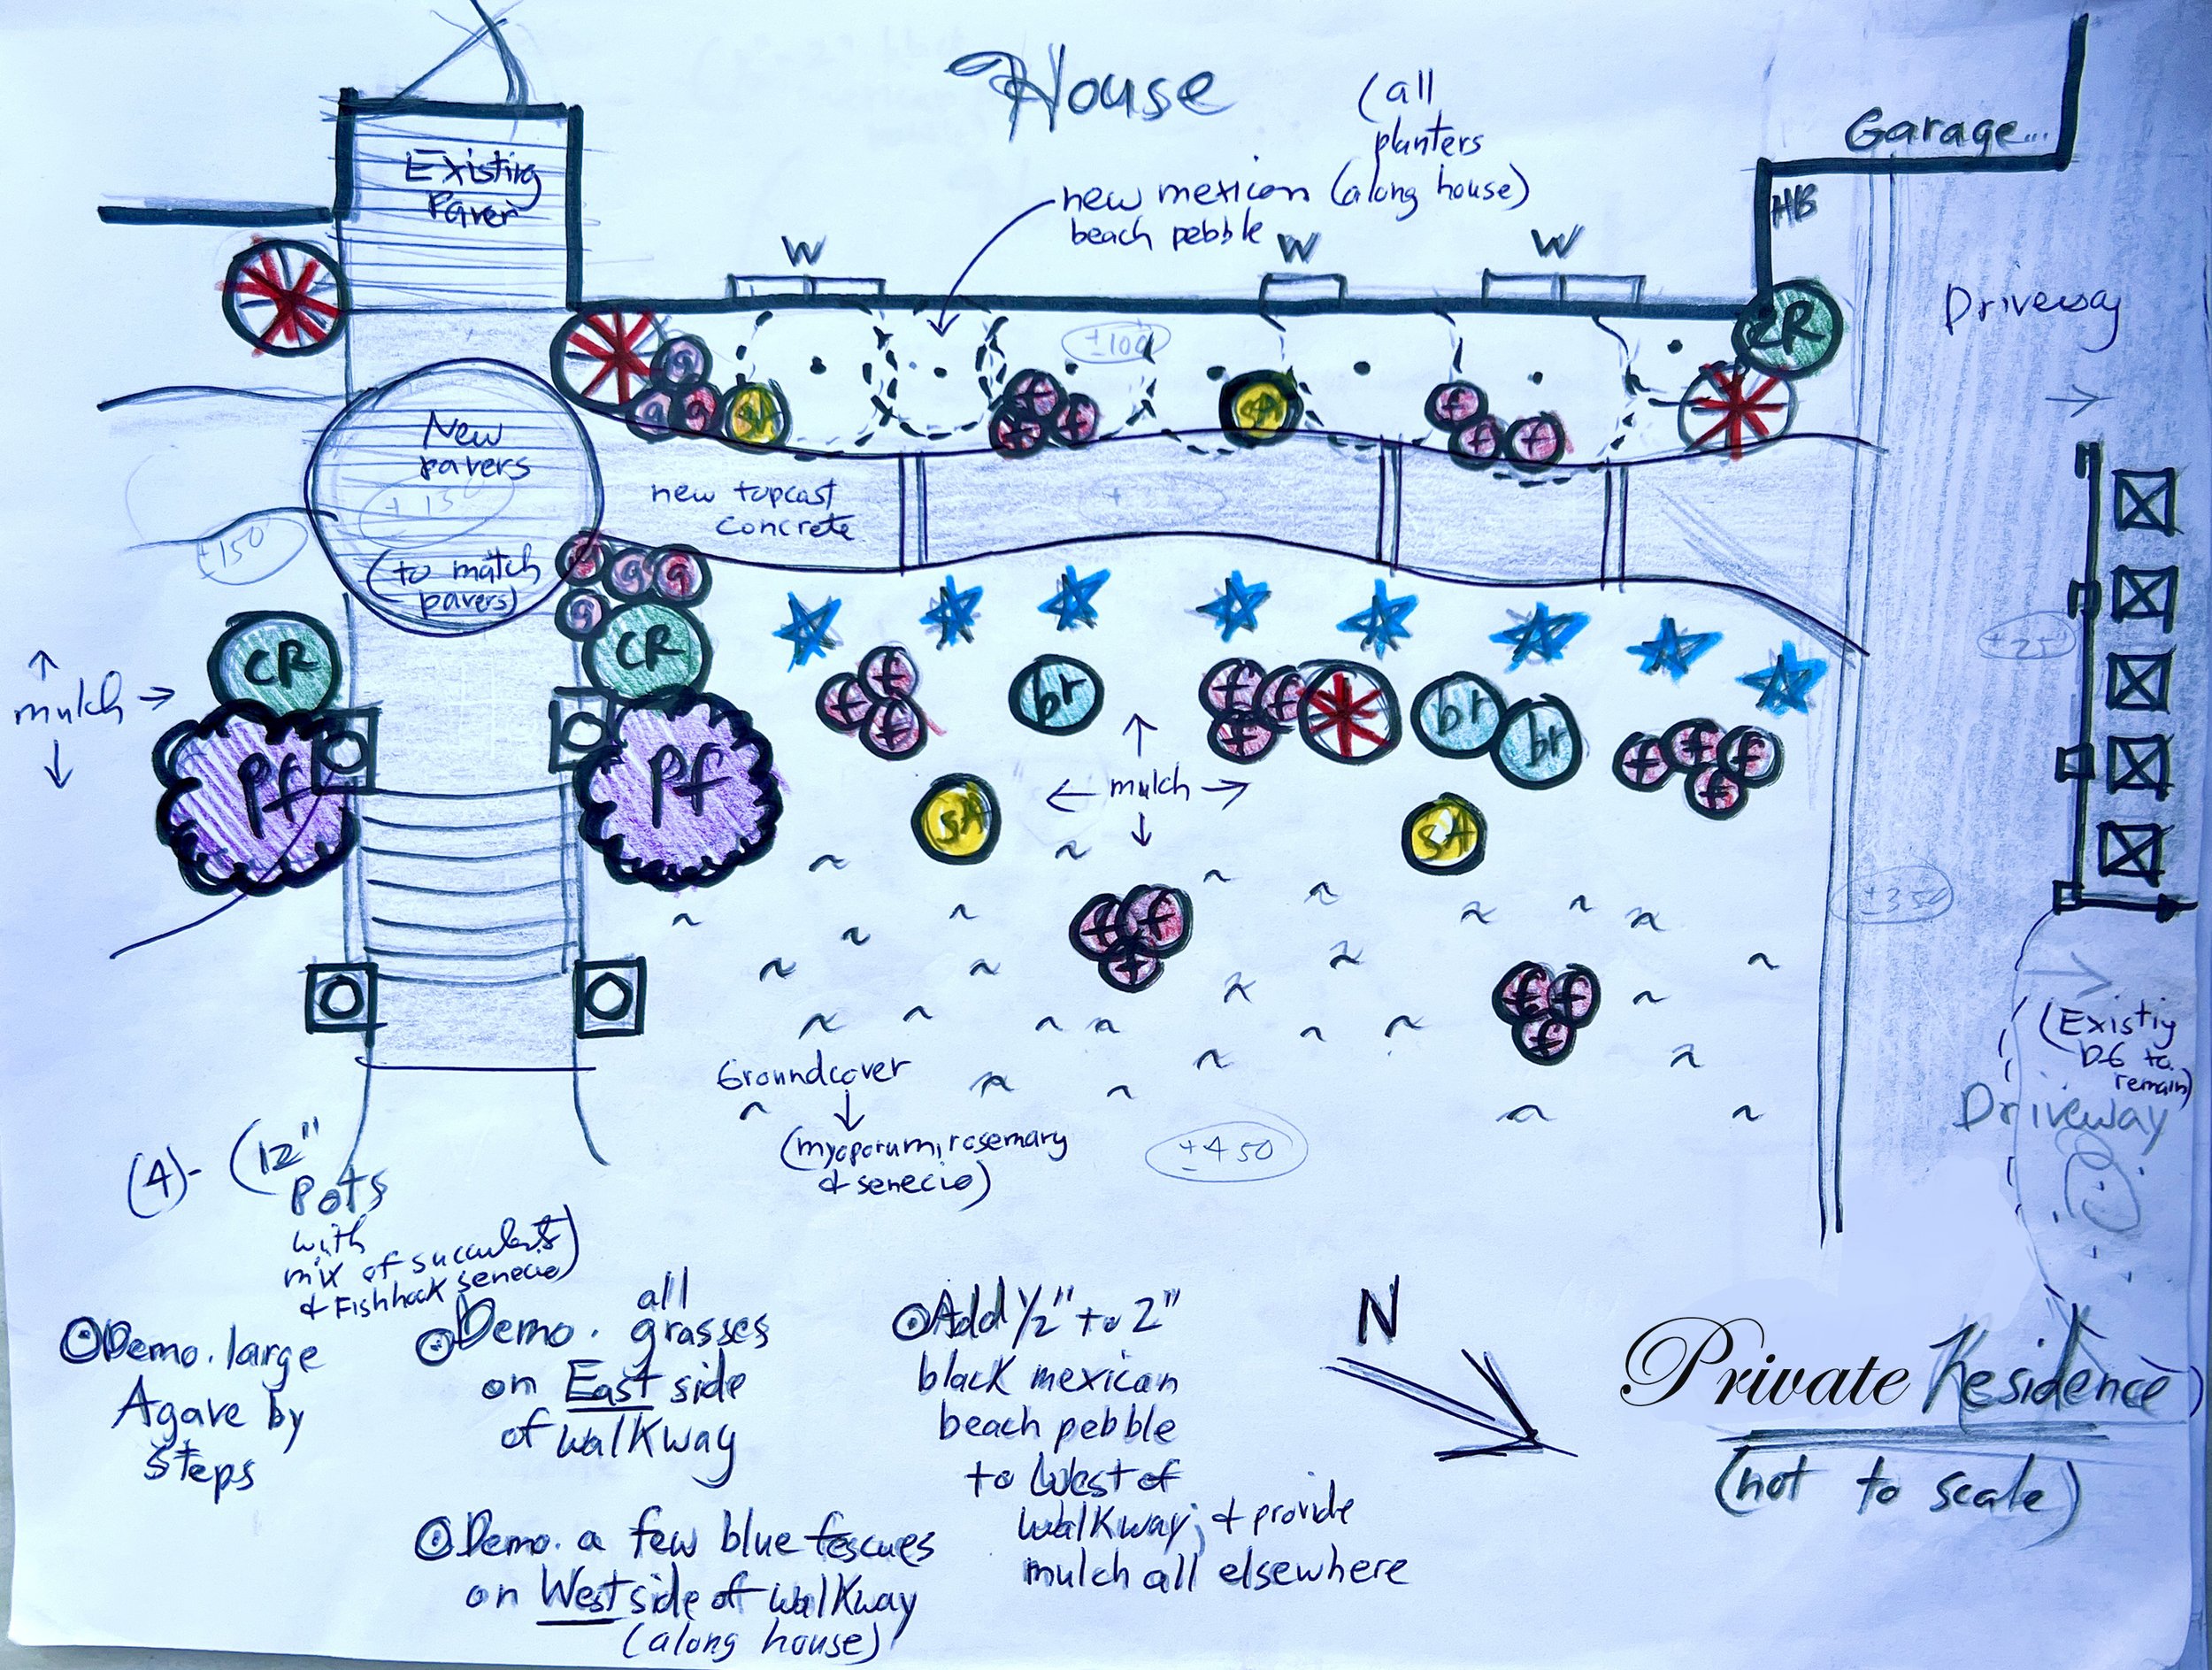 House
(all
planters
(along house)
new mexican
beach pebble
Garage...
HB
Existing
Paver
W
W
W
CR
Driveway
±100
g
g
g
SA
f
f
f
SA
f
f
f
New
pavers
+15
(to match
pavers)
new topcast
concrete
±150
g
g
g
g
±25
CR
CR
↑
mulch →
↓
f
f
f
br
f
f
f
br
br
f
f
f
f
Pf
Pf
↑
← mulch →
↓
SA
SA
f
f
f
±350
f
f
f
(Existig
DG to
remain)
Driveway
Groundcover
(myoporum, rosemary
& senecio)
±450
(4)- (12"
Pots
with
mix of succulents)
& Fishhook senecio
Demo. large
Agave by
steps
all
Demo. grasses
on East side
of walkway
Demo. a few blue fescues
on West side of walkway
(along house)
Add 1/2" to 2"
black mexican
beach pebble
to West of
walkway; & provide
mulch all elsewhere
N
Private Residence)
(not to scale)